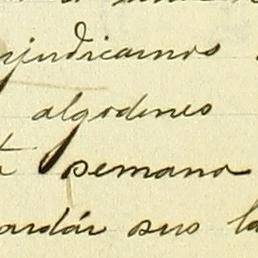 rjudicamos
algodones
semana
ardár sus la